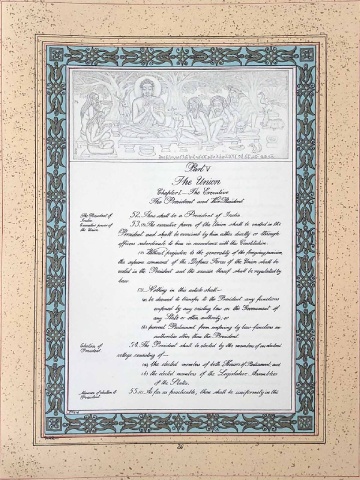 Part V
The Union
Chapter I.—The Executive
The President and Vice-President
The President of
India
52. There shall be a President of India.
Executive power of
the Union.
53.(1) The executive power of the Union shall be vested in the
President and shall be exercised by him either directly or through
officers subordinate to him in accordance with this Constitution.
(2) Without prejudice to the generality of the foregoing provision,
the supreme command of the Defence Forces of the Union shall be
vested in the President and the exercise thereof shall be regulated by
law.
(3) Nothing in this article shall—
(a) be deemed to transfer to the President any functions
conferred by any existing law on the Government of
any State or other authority; or
(b) prevent Parliament from conferring by law functions on
authorities other than the President.
Election of
President.
54. The President shall be elected by the members of an electoral
college consisting of—
(a) the elected members of both Houses of Parliament; and
(b) the elected members of the Legislative Assemblies
of the States.
Manner of election of
President.
55.(1) As far as practicable, there shall be uniformity in the
20